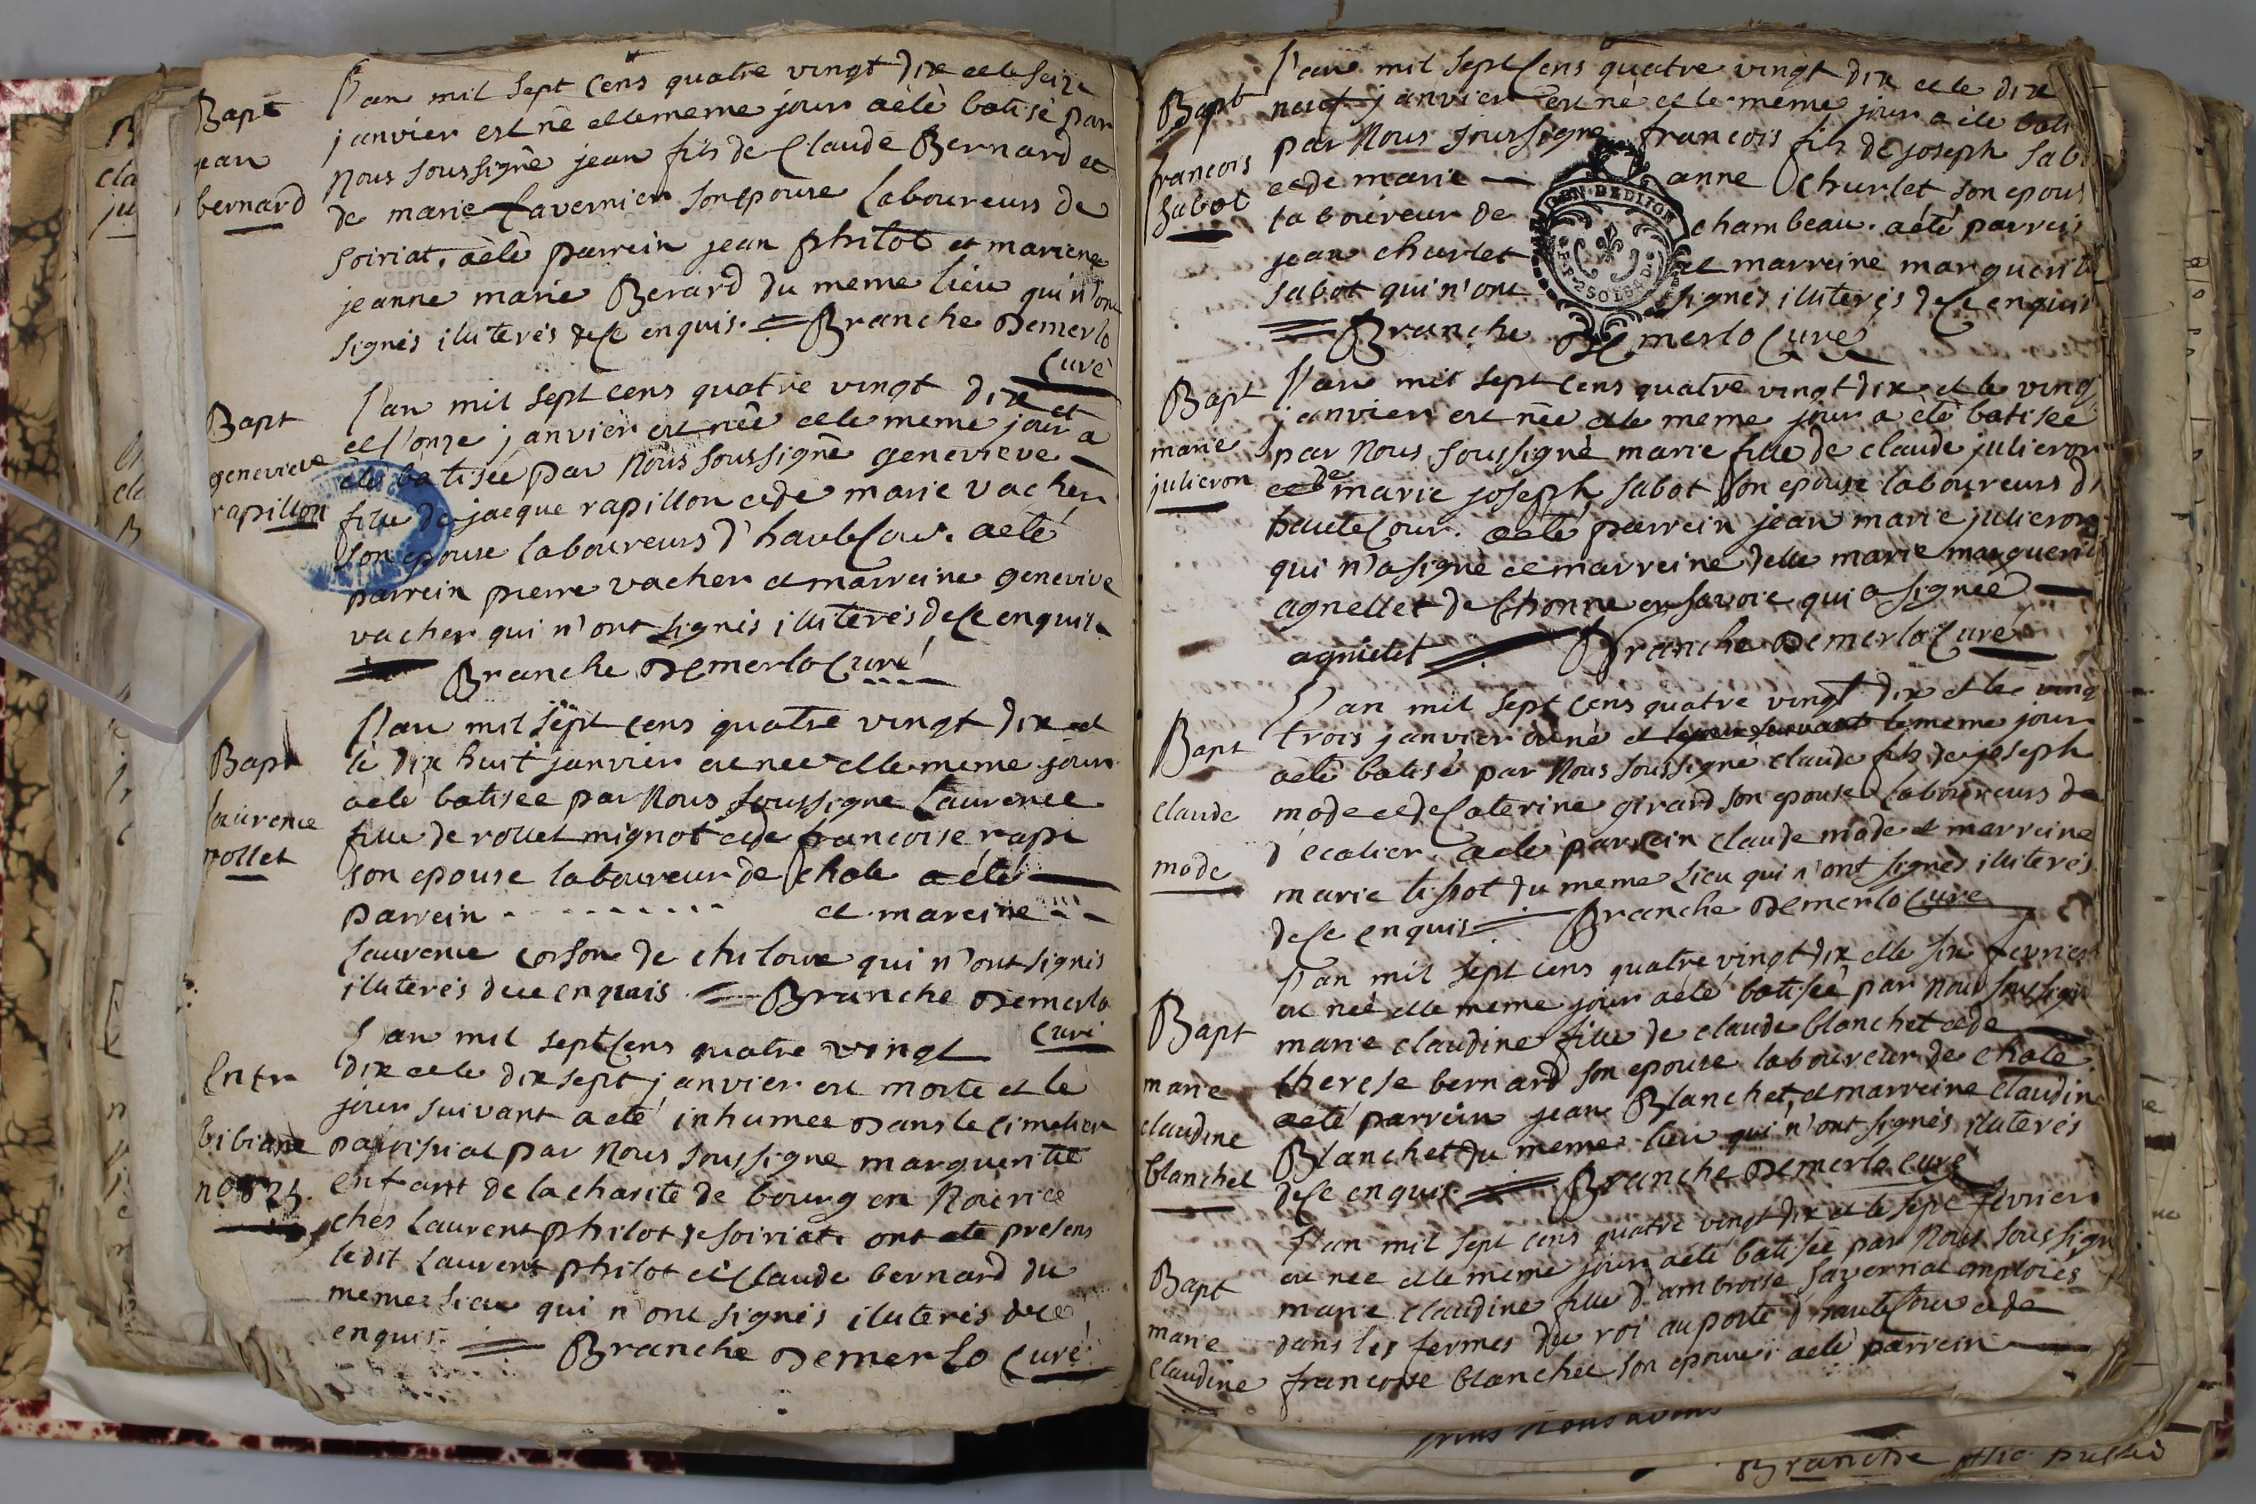 Bapt
jean
bernard
L'an mil sept Cens quatre vingt dix et le seize
janvier est né et le meme jour a èté batisé par
Nous soussigné jean fils de Claude Bernard et
de marie Tavernier son epouse Laboureurs de
soiriat. a èté parrein jean philot et mariene
jeanne marie Berard du meme lieu qui n'ont
signés illiterés de Ce enquis. = Branche Demerlo
Curé
Bapt
genevieve
rapillon
L'an mil sept cens quatre vingt dix et
et l'onze janvier est née et le meme jour a
eté batisée par Nous soussigné genevieve
fille de jacque rapillon et de marie vacher
son epouse laboureurs d'hauteCour. a eté
parrein pierre vacher et marreine genevive
vacher qui n'ont signés illiterés de Ce enquis
Branche Demerlo Curé
Bapt
laurence
rollet
L'an mil sept cens quatre vingt dix et
le dix huit janvier est née et le meme jour
a eté batisée par Nous soussigné Laurence
fille de rollet mignot et de francoise rapi
son epouse laboureur de Chale a été
parrein - - - - - - - - et mareine - -
laurence corson de chiloux qui n'ont signés
illiterés de ce enquis = Branche Demerlo
Curé
Entr
bibiane
n° 825
L'an mil sept Cens quatre vingt
dix et le dix sept janvier est morte et le
jour suivant a eté inhumée dans le Cimetier
paroisial par Nous soussigne margueritte
enfant de la charité de bourg en Nourice
ches Laurent philot de soiriat. ont eté presens
ledit Laurent philot et Claude bernard du
meme lieu qui n'ont signés illiterés de Ce
enquis. = Branche Demerlo Curé
Bapt
francois
Sabot
L'an mil sept Cens quatre vingt dix et le dix
neuf janvier est né et le meme jour a èté bati
par Nous soussigné francois fils de joseph Sabo
et de marie — anne Churlet son epous
laboureur de chambeau. a èté parrein
jean churlet et marreine marguerite
sabot qui n'ont signés illiterés de Ce enquis
= Branche Demerlo Curé
GEN DE DIJON
Bapt
marie
julieron
L'an mil sept Cens quatre vingt dix et le ving
janvier est née et le meme jour a èté batisée
par Nous soussigné marie fille de claude julieron
et de marie joseph sabot son epouse laboureurs d
hauteCour. a eté parrein jean marie julieron
qui n'a signé et marreine delle marie marguerit
agnellet de Thonne en savoie qui a signée
agnielet = Branche Demerlo Curé
Bapt
claude
mode
L'an mil sept Cens quatre vingt dix et le ving
trois janvier est né et le jour suivant le meme jour
a èté batisé par Nous soussigné claude fils de joseph
mode et de Caterine girard son epouse laboureurs de
d'écolier. a eté parrein claude mode et marreine
marie tissot du meme lieu qui n'ont signés illiterés
de Ce enquis = Branche Demerlo Curé
Bapt
marie
claudine
blanchet
L'an mil sept cens quatre vingt dix et le six fevrier
est née et le meme jour a eté batisée par Nous soussigné
marie claudine fille de claude blanchet et de
therese bernard son epouse laboureur de Chale
a eté parrein jean Blanchet, et marreine claudine
Blanchet du meme lieu qui n'ont signés illiterés
de Ce enquis = Branche Demerlo Curé
Bapt
marie
Claudine
L'an mil sept cens quatre vingt dix et le sept fevrier
est née et le meme jour a eté batisée par Nous soussign
marie Claudine fille d'ambroise savernat emploiés
dans les fermes du roi au poste d'hauteCour et de
francoise blanchet son epouse, a èté parrein
Nous avons
Branche